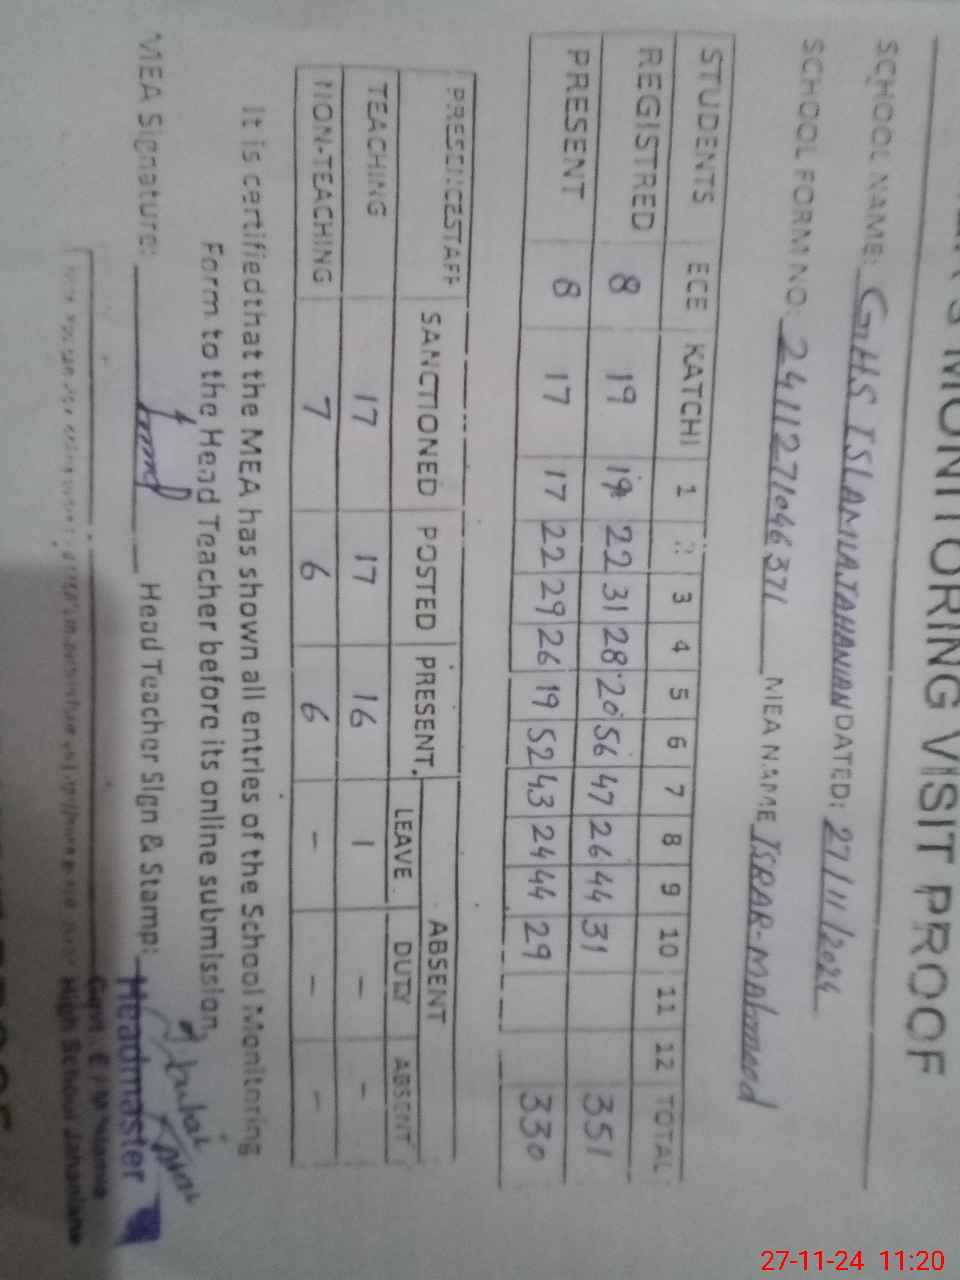 MONITORING VISIT PROOF
SCHOOL NAME: GHS ISLAMIA JAHANIAN DATED: 27/11/2024
SCHOOL FORM NO: 241127104637 MEA NAME ISRAR-Mahmood
STUDENTS ECE KATCHI 1 2 3 4 5 6 7 8 9 10 11 12 TOTAL
REGISTRED 8 19 19 22 31 28 20 56 47 26 44 31 351
PRESENT 8 17 17 22 29 26 19 52 43 24 44 29 330
PRESENCE STAFF SANCTIONED POSTED PRESENT ABSENT
LEAVE DUTY ABSENT
TEACHING 17 17 16 1 - -
NON-TEACHING 7 6 6 - - -
It is certified that the MEA has shown all entries of the School Monitoring
Form to the Head Teacher before its online submission.
MEA Signature: Head Teacher Sign & Stamp:
Headmaster
Govt.
High School Jahaniane
27-11-24 11:20